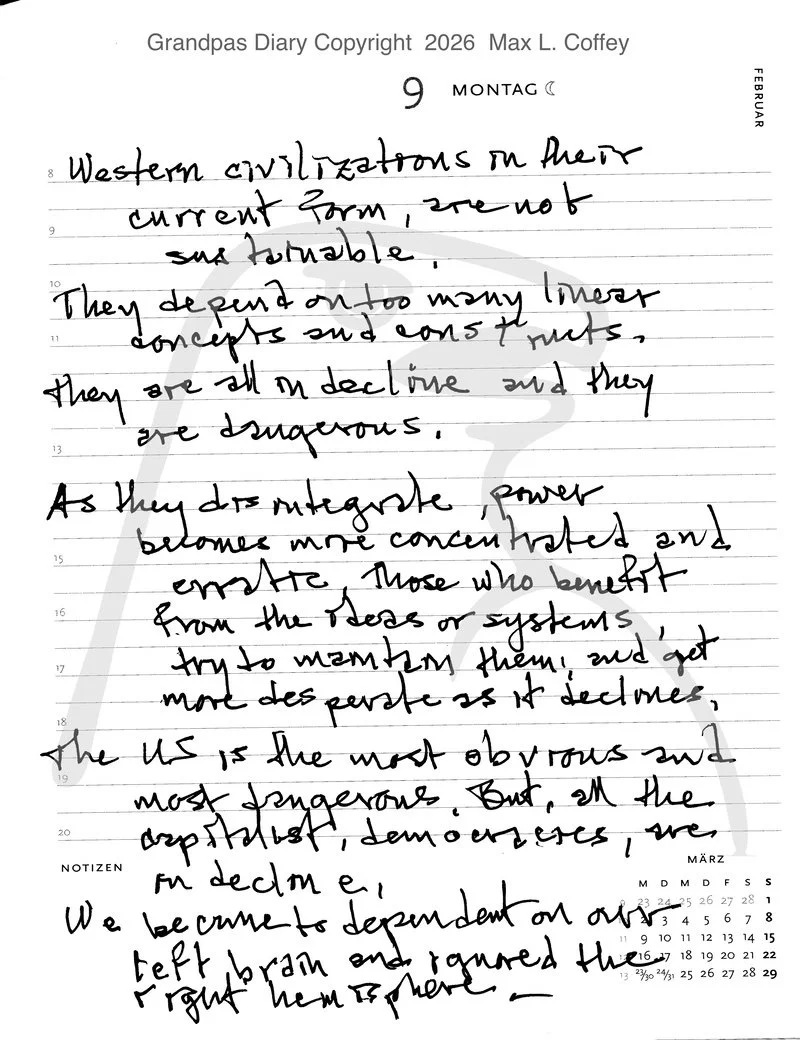 Grandpas Diary Copyright 2026 Max L. Coffey
9 MONTAG ☾
FEBRUAR
8 Western civilizations in their
current form, are not
9
sustainable.
10 They depend on too many linear
11 concepts and constructs.
They are all in decline and they
are dangerous.
13
As they disintegrate, power
becomes more concentrated and
15
erratic. Those who benefit
16 from the ideas or systems,
17 try to maintain them, and get
more desperate as it declines.
18
The US is the most obvious and
19
most dangerous. But, all the
20 capitalist, democracies, are
NOTIZEN
in decline.
We became to dependent on our
left brain and ignored the
right hemisphere. —
MÄRZ
M D M D F S S
9 23 24 25 26 27 28 1
2 3 4 5 6 7 8
11 9 10 11 12 13 14 15
16 17 18 19 20 21 22
13 23/30 24/31 25 26 27 28 29